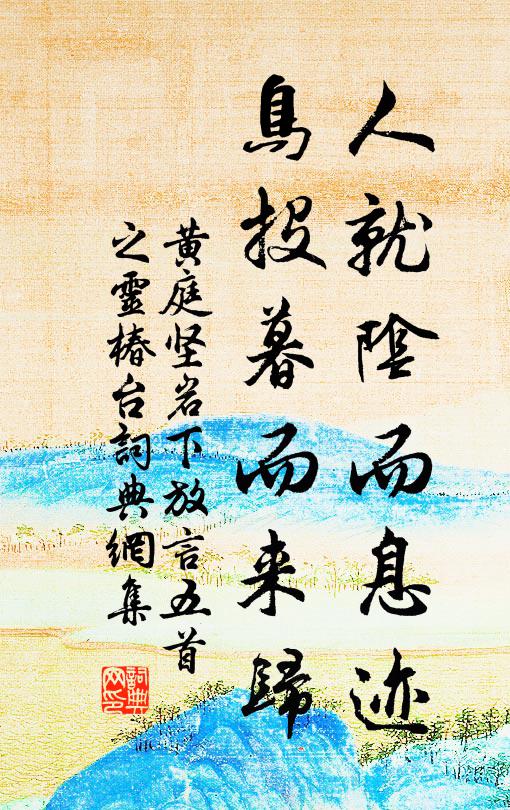 人就陰而息迹
鳥投暮而来歸
黄庭坚岩下放言五首
之靈椿台詞典網集
詞典網印